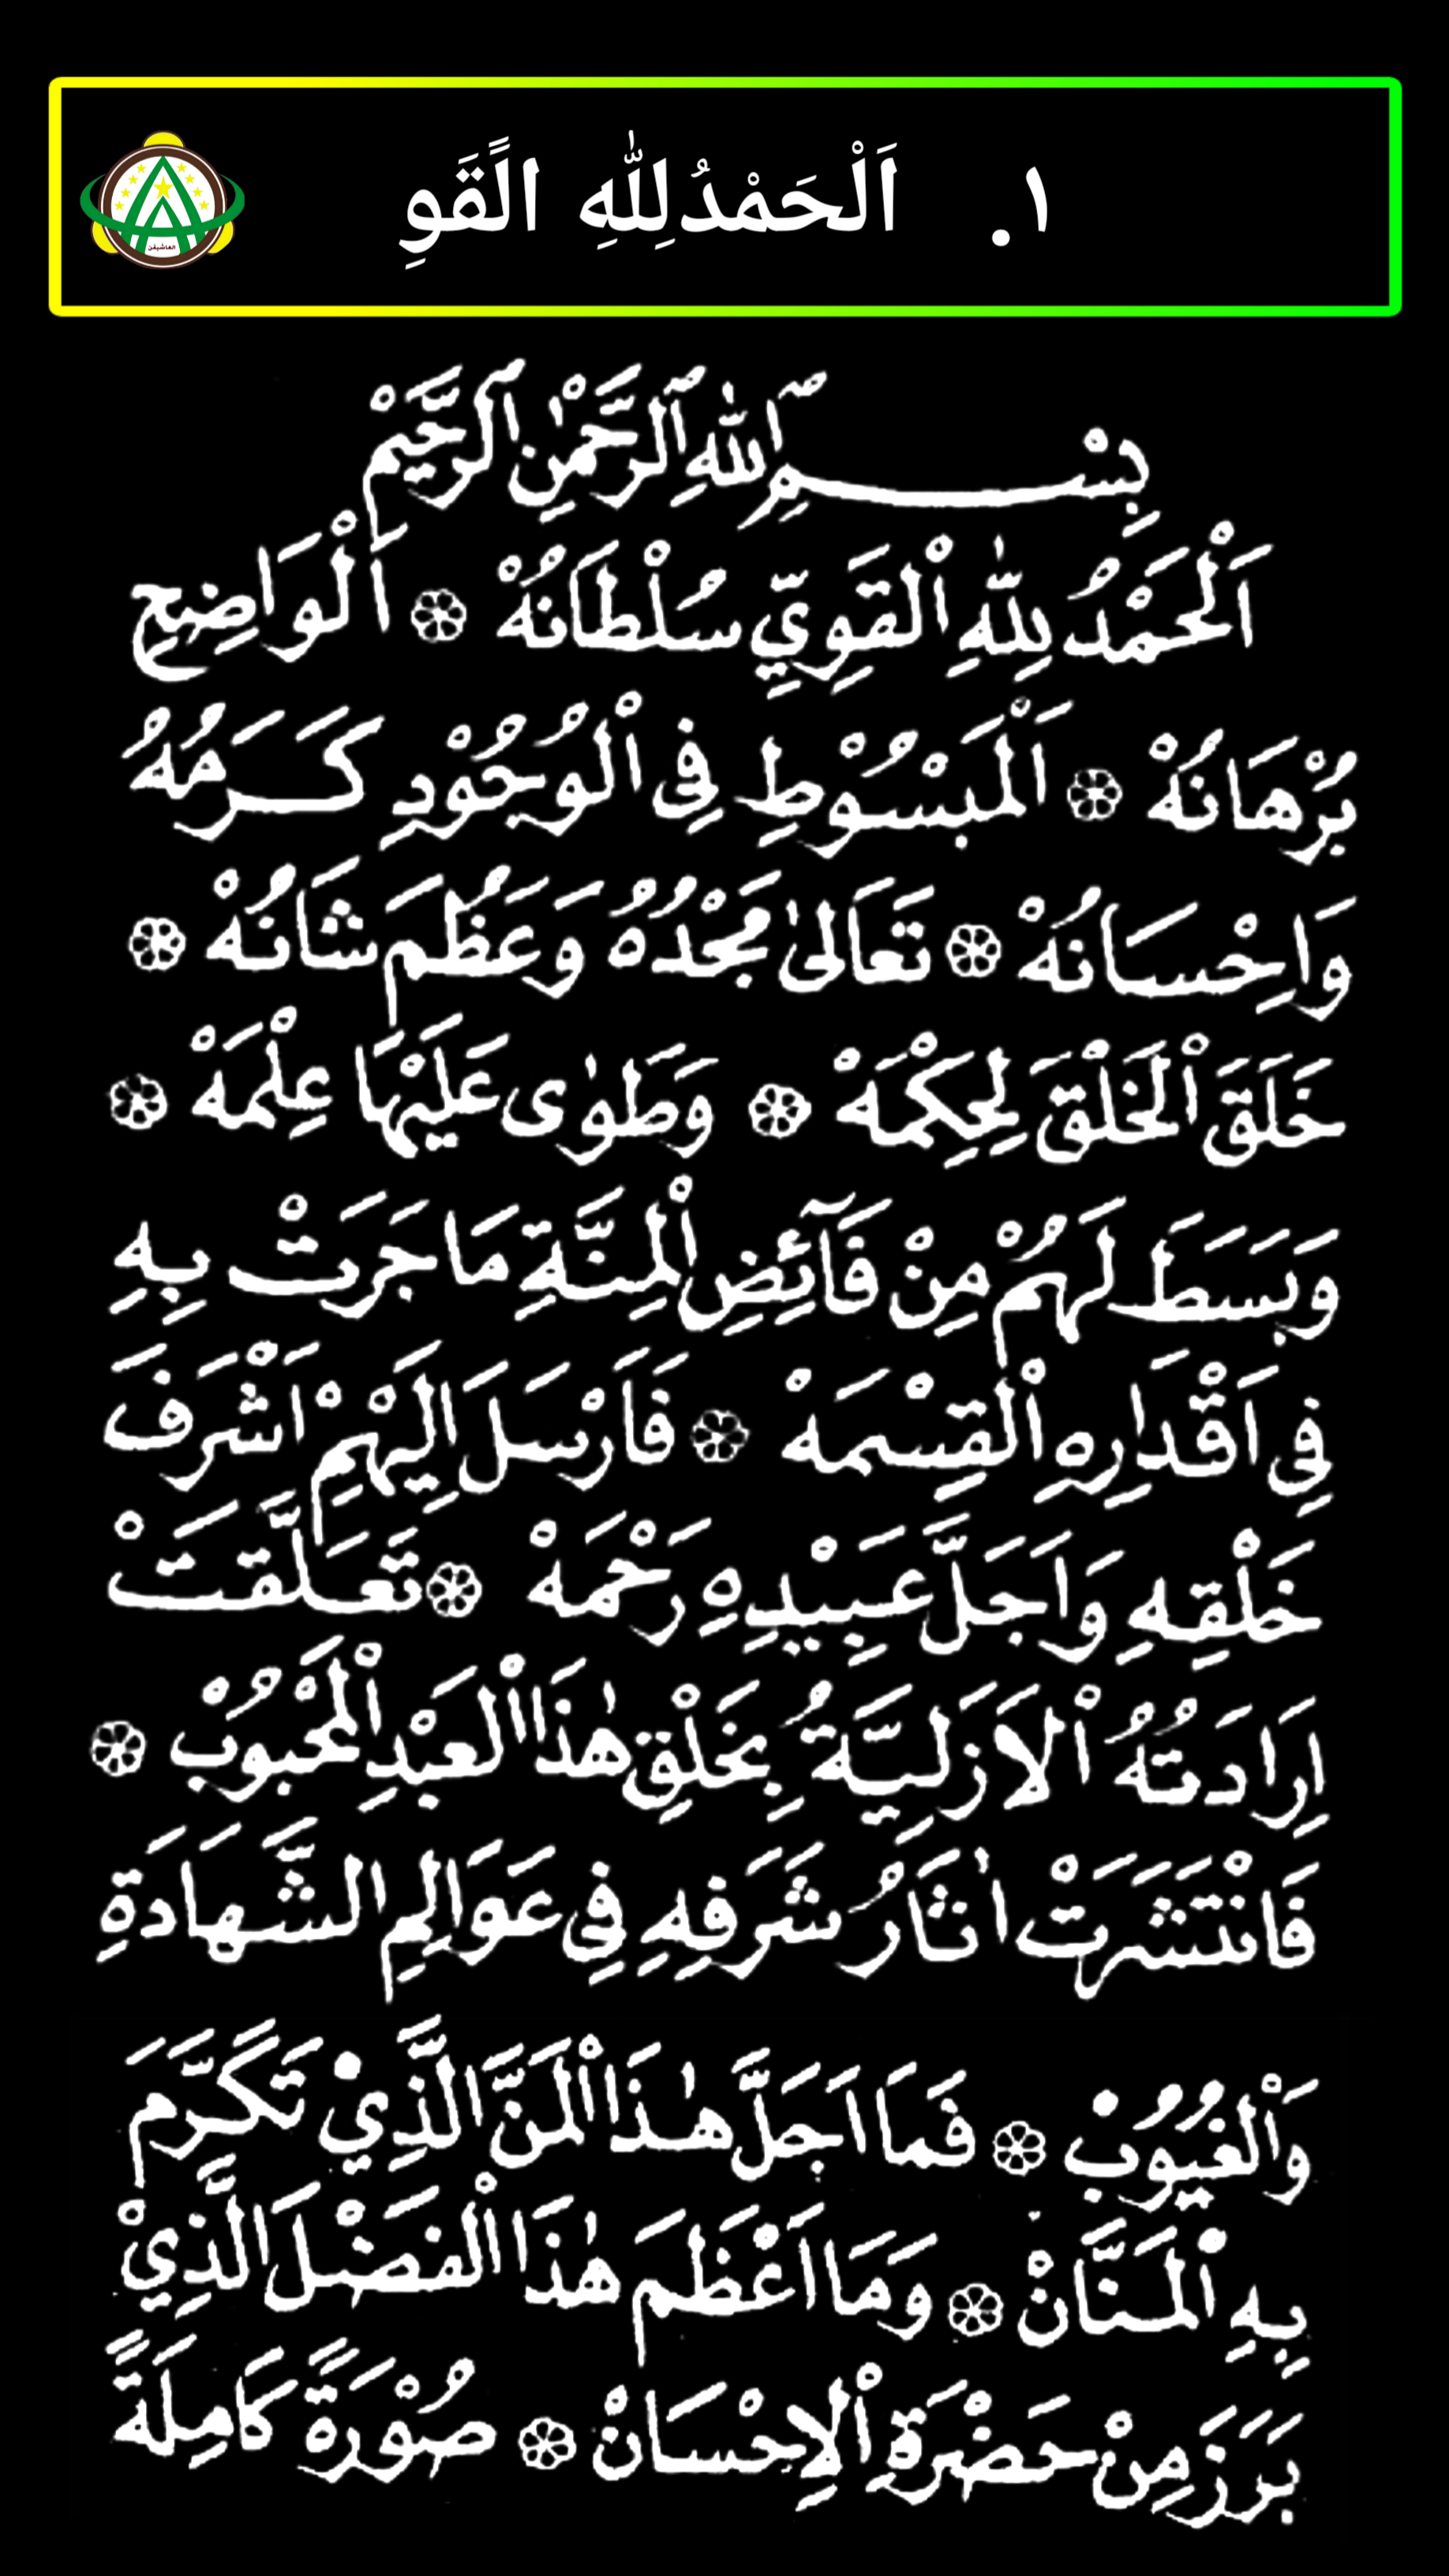 ١. اَلْحَمْدُلِلّٰهِ الًقَوِ
العاشقين
بِسْمِ اللّٰهِ الرَّحْمٰنِ الرَّحِيْمِ
اَلْحَمْدُ لِلّٰهِ الْقَوِيِّ سُلْطَانُهْ ۞ اَلْوَاضِحِ
بُرْهَانُهْ ۞ اَلْمَبْسُوْطِ فِى الْوُجُوْدِ كَرَمُهُ
وَاِحْسَانُهْ ۞ تَعَالىٰ مَجْدُهُ وَعَظُمَ شَانُهْ ۞
خَلَقَ الْخَلْقَ لِحِكْمَهْ ۞ وَطَوٰى عَلَيْهَا عِلْمَهْ ۞
وَبَسَطَ لَهُمْ مِنْ فَآئِضِ الْمِنَّةِ مَا جَرَتْ بِهِ
فِى اَقْدَارِهِ الْقِسْمَهْ ۞ فَاَرْسَلَ اِلَيْهِمْ اَشْرَفَ
خَلْقِهِ وَاَجَلَّ عَبِيْدِهِ رَحْمَهْ ۞ تَعَلَّقَتْ
اِرَادَتُهُ الْاَزَلِيَّةُ بِخَلْقِ هٰذَا الْعَبْدِ الْمَحْبُوْبْ ۞
فَانْتَشَرَتْ اٰثَارُ شَرَفِهِ فِى عَوَالِمِ الشَّهَادَةِ
وَالْغُيُوْبْ ۞ فَمَا اَجَلَّ هٰذَا الْمَنَّ الَّذِيْ تَكَرَّمَ
بِهِ الْمَنَّانْ ۞ وَمَا اَعْظَمَ هٰذَا الْفَضْلَ الَّذِيْ
بَرَزَ مِنْ حَضْرَةِ الْاِحْسَانْ ۞ صُوْرَةً كَامِلَةً